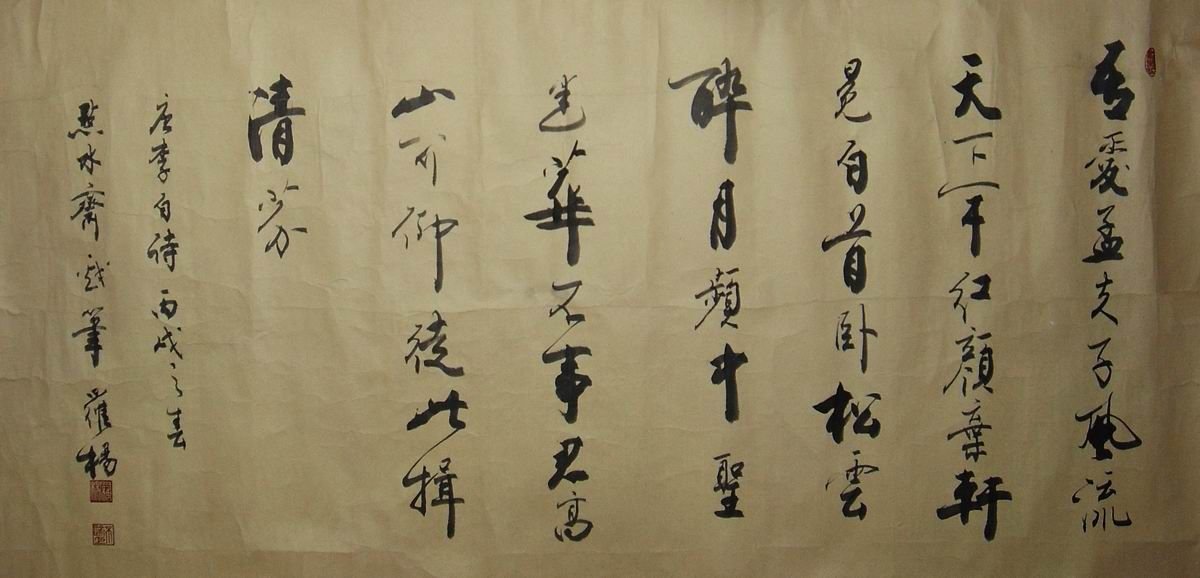 吾愛孟夫子風流
天下聞紅顏棄軒
冕白首卧松雲
醉月頻中聖
迷華不事君高
山可仰徒此揖
清芬
唐李白詩丙戌之春
點水齋戲筆羅楊